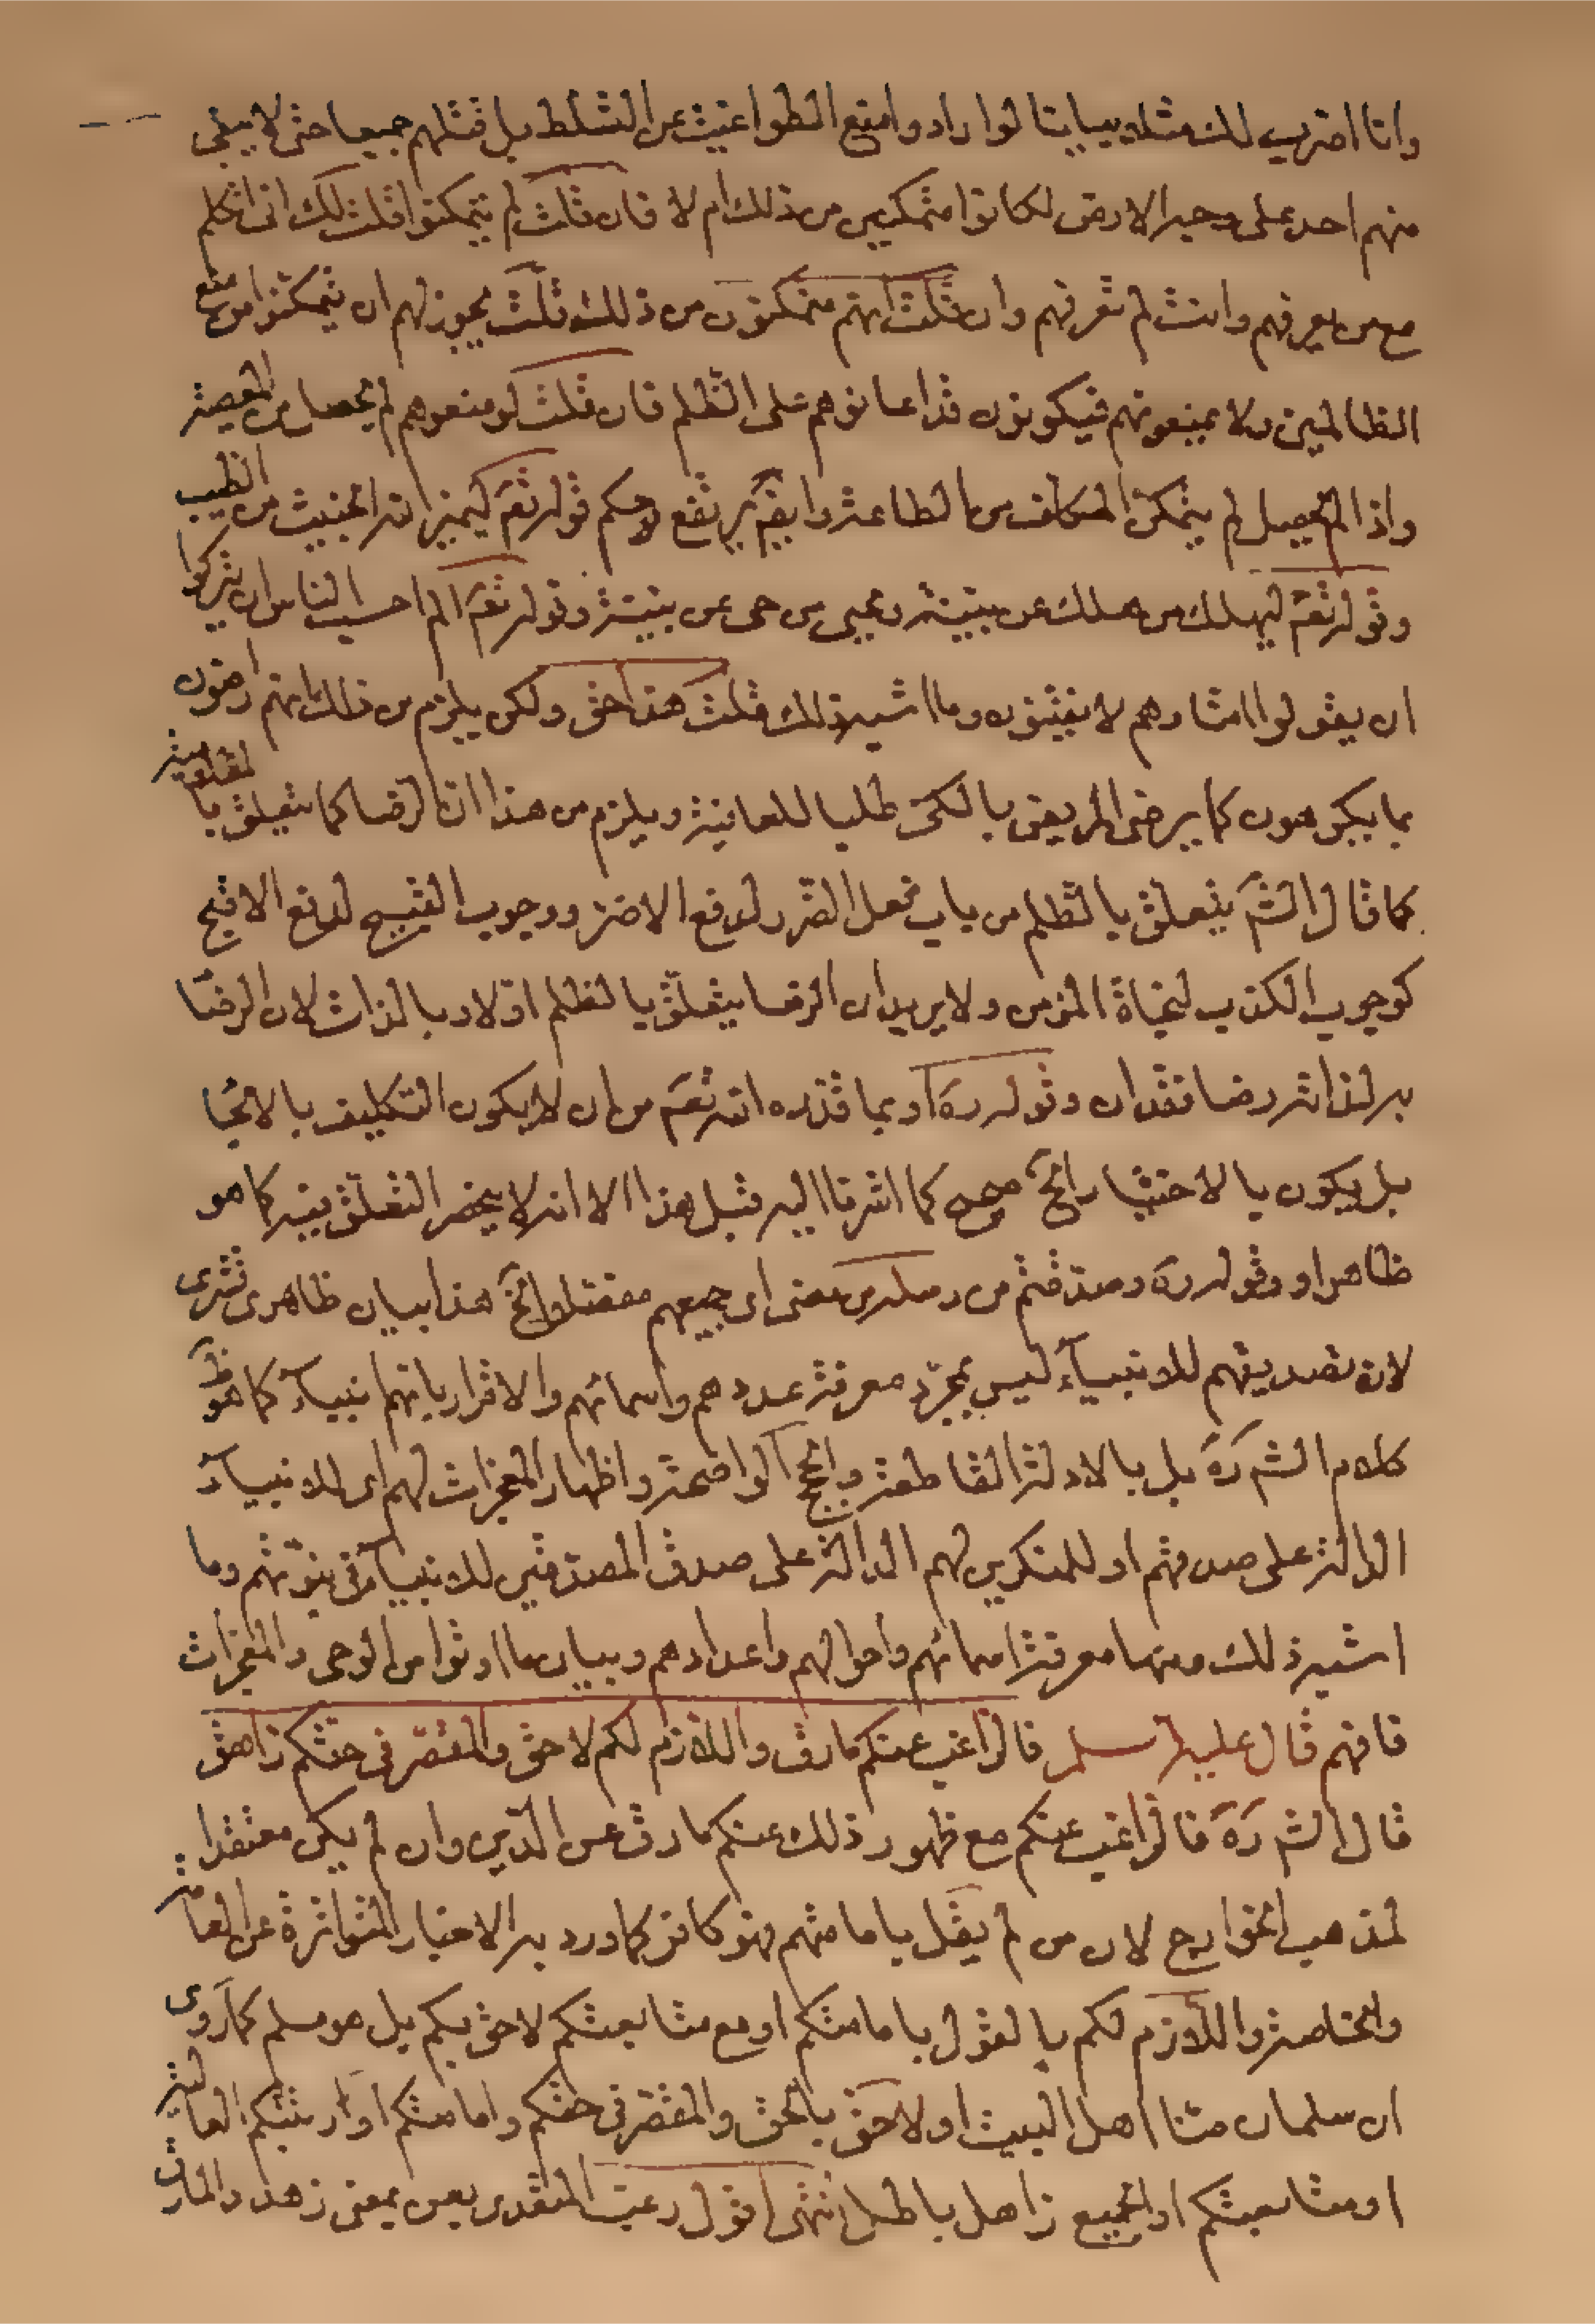 وانا اضرب لك مثلا بيانا لو ارادوا منع الطواغيت عن التسلط بل قتلهم جميعا حتى لا يبقى
منهم احد على وجه الارض لكانوا متمكنين من ذلك ام لا فان قلت لم يتمكنوا قلت لك انى اتكلم
مع من يعرفهم وانت لم تعرفهم وان قلت انهم متمكنون من ذلك قلت يجوز لهم ان يتمكنوا من منع
الظالمين ولا يمنعونهم فيكونون قد اعانوهم على الظلم فان قلت لو منعوهم لم يحصل من المعصية
واذا لم يحصل لم يتمكن المكلف من الطاعة وايضا يرتفع قوله تع ليميز الله الخبيث من الطيب
وقوله تع ليهلك من هلك عن بينة ويحيى من حى عن بينة وقوله تع الم احسب الناس ان يتركوا
ان يقولوا امنا وهم لا يفتنون وما اشبه ذلك قلت هذا حق ولكن يلزم من ذلك انهم راضون
بما يكرهون كما يرضى المريض بالكى طلبا للعافية ويلزم من هذا ان الرضا كما يتعلق با
كما قال الش يتعلق بالظلم من باب فعل الضرر لدفع الاضر ووجوب القبيح لدفع الاقبح
كوجوب الكذب لنجاة المؤمن ولا يريد ان الرضا يتعلق بالظلم اولا وبالذات لان الرضا
به لذاته رضا فقدان وقوله ره او بما قدره الله تع من ان لا يكون التكليف بالالجا
بل يكون بالاختيار الخ صحيح كما اشرنا اليه قبل هذا الا انه لا ينحصر التعلق فيه كما هو
ظاهر او وقوله ره وصدقتم من رسله من مضى اى جميعهم مفصلا الخ هذا بيان ظاهرى قشرى
لان تصديقهم للانبياء ليس بمجرد معرفة عددهم واسمائهم والاقرار بانهم انبياء كما هو ظ
كلام الش ره بل بالادلة القاطعة والحجج الواضحة واظهار المعجزات لهم اى للانبياء
الدالة على صدقهم او للمنكرين لهم الدالة على صدق المصدقين للانبياء فى نبوتهم وما
اشبه ذلك ومنها معرفة اسمائهم واحوالهم واعدادهم وبيان ما اوتوا من الوحى والمعجزات
فافهم قال عليه السلم فالراغب عنكم مارق واللازم لكم لاحق والمقصر فى حقكم زاهق
قال الش ره فالراغب عنكم مع ظهور ذلك عنكم مارق عن الدين وان لم يكن معتقدا
لمذهب الخوارج لان من لم يقل بامامتهم فهو كافر كما ورد به الاخبار المتواترة عن العامة
والخاصة واللازم لكم بالقول بامامتكم او مع متابعتكم لاحق بكم بل هو مسلم كما روى
ان سلمان منا اهل البيت او لاحق بالحق والمقصر فى حقكم وامامتكم او رتبتكم العالية
او متابعتكم او الجميع زاهل باطل انتهى اقول رغب المتعدى بعن بمعنى زهد والمارق